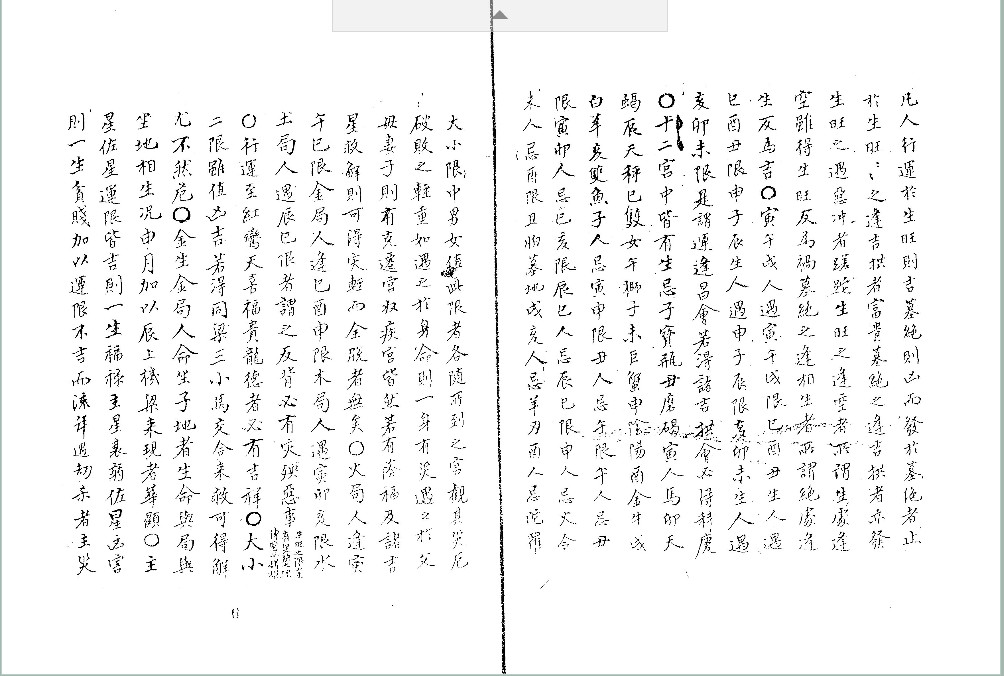 凡人行運於生旺則吉墓絕則凶而發於墓絕者止
於生旺生旺之逢吉拱者富貴墓絕之逢吉拱者亦發
生旺之遇惡冲者蹉跎生旺之逢空者所謂生處逢
空雖得生旺反為禍墓絕之逢相生者所謂絕處逢
生反為吉〇寅午戌人遇寅午戌限巳酉丑生人遇
巳酉丑限申子辰生人遇申子辰限亥卯未生人遇
亥卯未限是謂運逢昌會若得諸吉拱會必得科慶
〇十二宮中皆有生忌子寶瓶丑磨碣寅人馬卯天
蝎辰天秤巳雙女午獅子未巨蟹申陰陽酉金牛戌
白羊亥雙魚子人忌寅申限丑人忌午限午人忌丑
限寅卯人忌巳亥限辰巳人忌辰巳限申人忌火令
未人忌酉限丑 墓地戌亥人忌羊刃酉人忌陀羅
大小限中男女 此限者各隨所到之宮觀其災厄
破敗之輕重如遇之於身命則一身有災遇之於父
母妻子則有 遷宮奴疾宮皆然若有陰福及諸吉
星救解則可得災輕而全殁者無矣〇火局人逢寅
午巳限金局人逢巳酉申限木局人遇寅卯亥限水
土局人遇辰巳限者謂之反背必有災殃惡事
〇行運至紅鸞天喜福貴龍德者必有吉祥〇大小
二限雖值凶吉若得同梁三小馬交合來救可得解
尤不然危〇金生金局人命坐子地者生命與局與
坐地相生況申月加以辰上機梁來現者華顯〇主
星佐星運限皆吉則一生福祿主星衰弱佐星凶害
則一生貧賤加以運限不吉而流年遇劫杀者主災
6